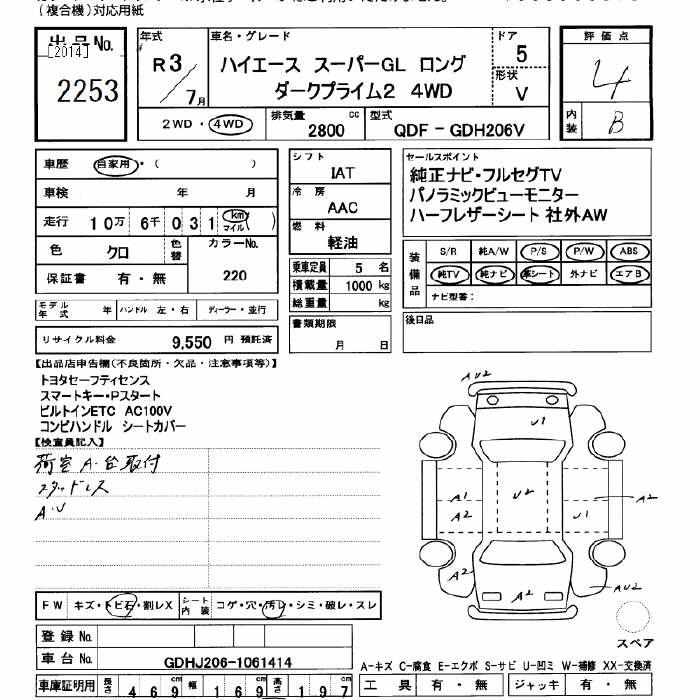 (複合機)対応用紙
出品No.
[2014]
2253
年式
R3/7月
車名・グレード
ハイエース スーパーGL ロング
ダークプライム2 4WD
ドア
5
形状
V
評価点
4
内装
B
2WD・4WD
排気量
2800 cc
型式
QDF-GDH206V
車歴 自家用・( )
車検 年 月
走行 10万 6千 031 km マイル ( )
色 クロ 色替
カラーNo.
220
保証書 有・無
モデル年式 年 ハンドル 左・右 ディーラー・並行
リサイクル料金 9,550 円 預託済
シフト
IAT
冷房
AAC
燃料
軽油
乗車定員 5 名
積載量 1000 kg
総重量 kg
書類期限
月 日
セールスポイント
純正ナビ・フルセグTV
パノラミックビューモニター
ハーフレザーシート 社外AW
装備品
S/R 純A/W P/S P/W ABS
純TV 純ナビ 革シート 外ナビ エアB
ナビ型番:
後日品
【出品店申告欄(不良箇所・欠品・注意事項等)】
トヨタセーフティセンス
スマートキー・Pスタート
ビルトインETC AC100V
コンビハンドル シートカバー
【検査員記入】
荷室 A・台取付
スタッドレス
A・U
AU2
U1
A1
A2
U2
U1
A2
A2
A2
AU2
スペア
FW キズ・トビ石・割レX
シート内装 コゲ・穴・汚レ・シミ・破レ・スレ
登録No.
車台No. GDHJ206-1061414
A-キズ C-腐食 E-エクボ S-サビ U-凹ミ W-補修 XX-交換済
車庫証明用 長さ 469 cm 幅 169 cm 高さ 197 cm
工具 有・無 ジャッキ 有・無